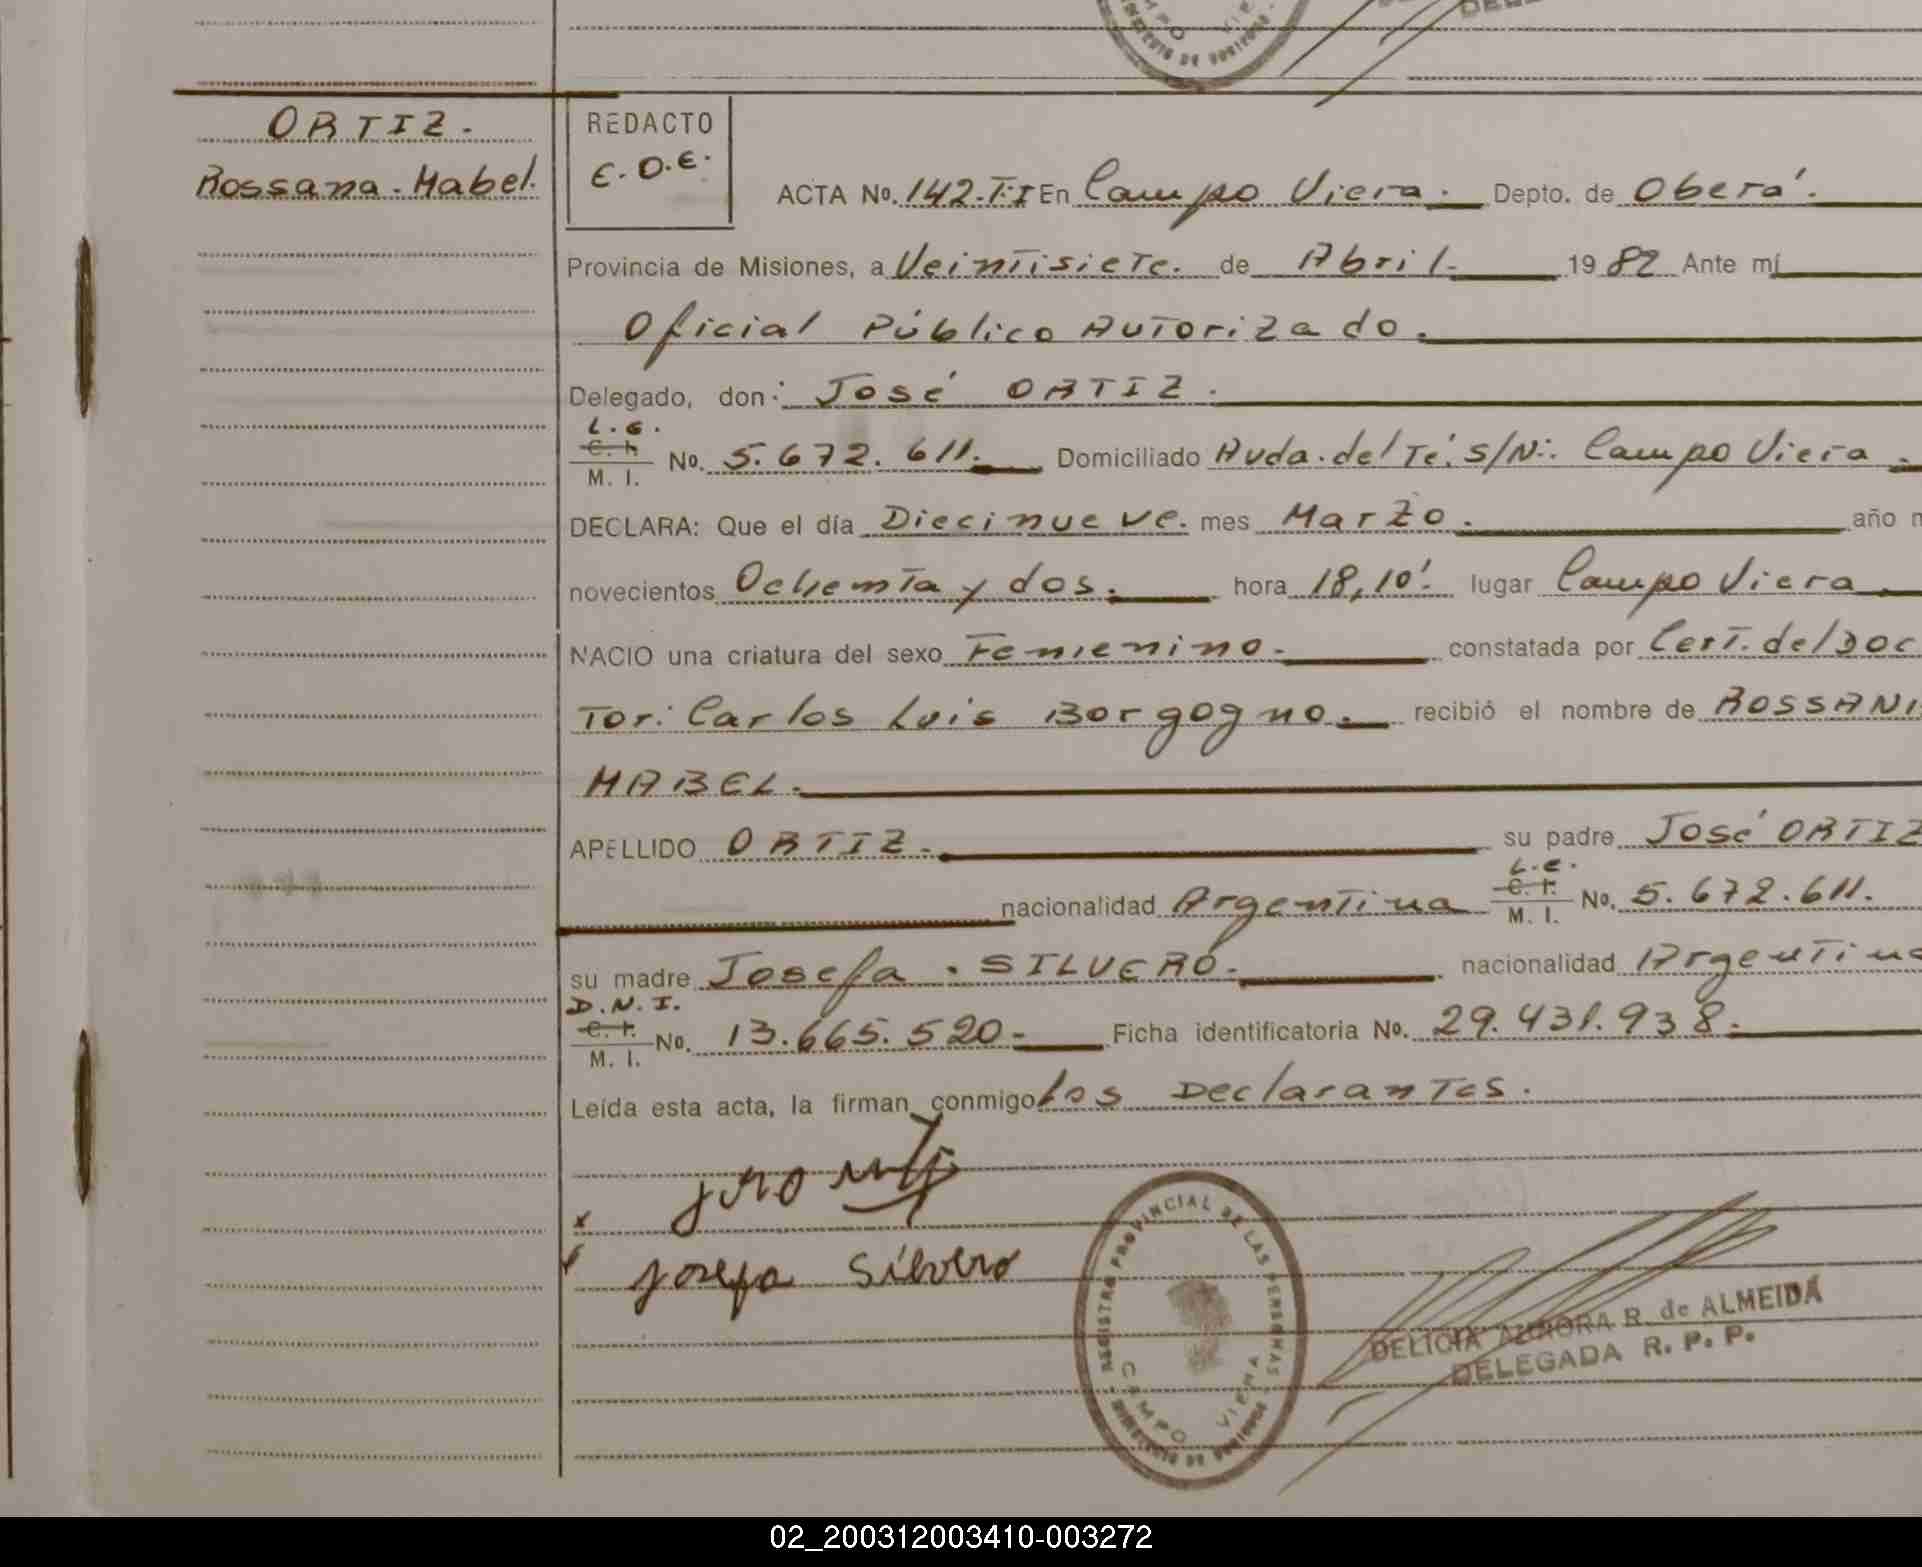 ORTIZ.
Rossana. Mabel.
REDACTO
E.O.E.
ACTA No. 142.T:I En Campo Viera. Depto. de Oberá.
Provincia de Misiones, a Veintisiete. de Abril 1982 Ante mí
Oficial Público Autorizado.
Delegado, don: José ORTIZ.
L.E.
C. I.
M. I.
No. 5.672.611. Domiciliado Avda. del Té. S/N: Campo Viera.
DECLARA: Que el día Diecinueve. mes Marzo. año
novecientos Ochenta y dos. hora 18,10'. lugar Campo Viera.
NACIO una criatura del sexo Femenino. constatada por Cert. del Doc
Tor: Carlos Luis Borgogno. recibió el nombre de ROSSANA
MABEL.
APELLIDO ORTIZ. su padre José ORTIZ
nacionalidad Argentina
L.E.
C. I.
M. I.
No. 5.672.611.
su madre Josefa. SILVERO. nacionalidad Argentina
D.N.I.
C. I.
M. I.
No. 13.665.520. Ficha identificatoria No. 29.431.938.
Leída esta acta, la firman conmigo Los Declarantes.
x
Josefa Silvero
REGISTRO PROVINCIAL DE LAS PERSONAS
CAMPO VIERA
DELICIA AURORA R. de ALMEIDA
DELEGADA R. P. P.
02_200312003410-003272